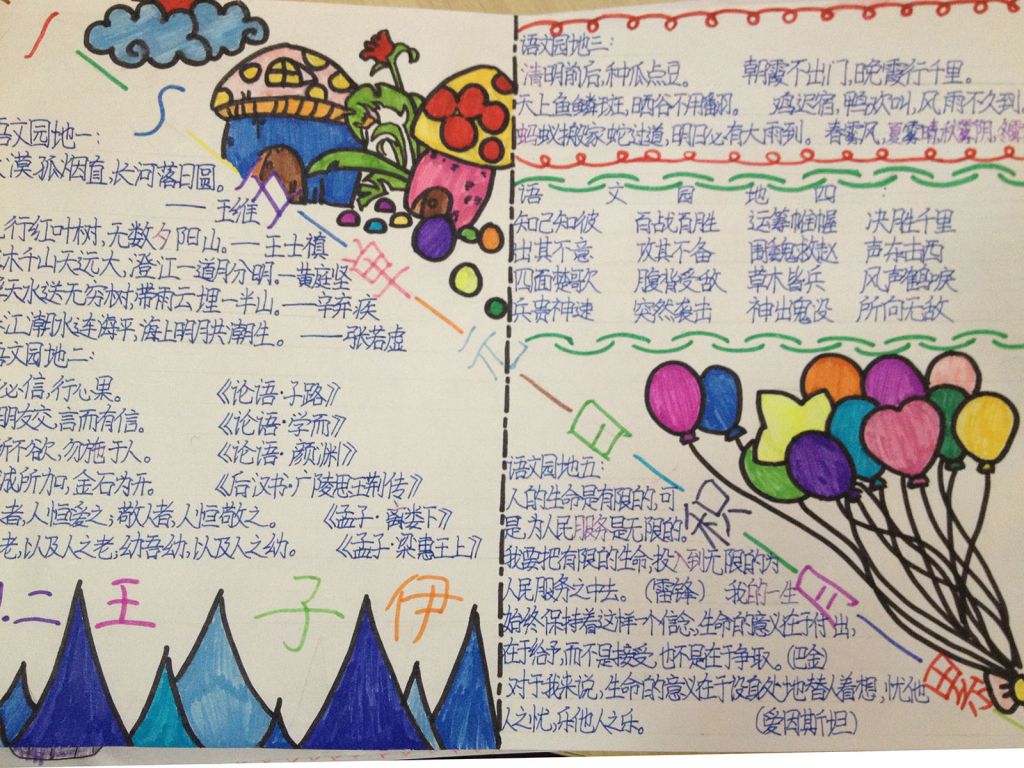 语文园地一:
漠孤烟直,长河落日圆。
——王维
行红叶树,无数夕阳山。—王士禛
木千山天远大,澄江一道月分明。—黄庭坚
天水送无穷树,带雨云埋一半山。—辛弃疾
江潮水连海平,海上明月共潮生。——张若虚
语文园地二:
必信,行必果。 《论语·子路》
朋友交,言而有信。 《论语·学而》
所不欲,勿施于人。 《论语·颜渊》
诚所加,金石为开。 《后汉书·广陵思王荆传》
者,人恒爱之;敬人者,人恒敬之。 《孟子·离娄下》
老,以及人之老,幼吾幼,以及人之幼。 《孟子·梁惠王上》
二 王 子 伊
单元日积月累
语文园地三:
清明前后,种瓜点豆。 朝霞不出门,晚霞行千里。
天上鱼鳞斑,晒谷不用翻。 鸡迟宿,鸭欢叫,风雨不久到
蚂蚁搬家蛇过道,明日必有大雨到。 春雾风,夏雾晴,秋雾阴,
语文园地四:
知己知彼 百战百胜 运筹帷幄 决胜千里
出其不意 攻其不备 围魏救赵 声东击西
四面楚歌 腹背受敌 草木皆兵 风声鹤唳
兵贵神速 突然袭击 神出鬼没 所向无敌
语文园地五:
人的生命是有限的,可
是,为人民服务是无限的。
我要把有限的生命,投入到无限的为
人民服务之中去。(雷锋) 我的一生
始终保持着这样一个信念,生命的意义在于付出,
在于给予,而不是接受,也不是在于争取。(巴金)
对于我来说,生命的意义在于设身处地替人着想,忧他
人之忧,乐他人之乐。 (爱因斯坦)